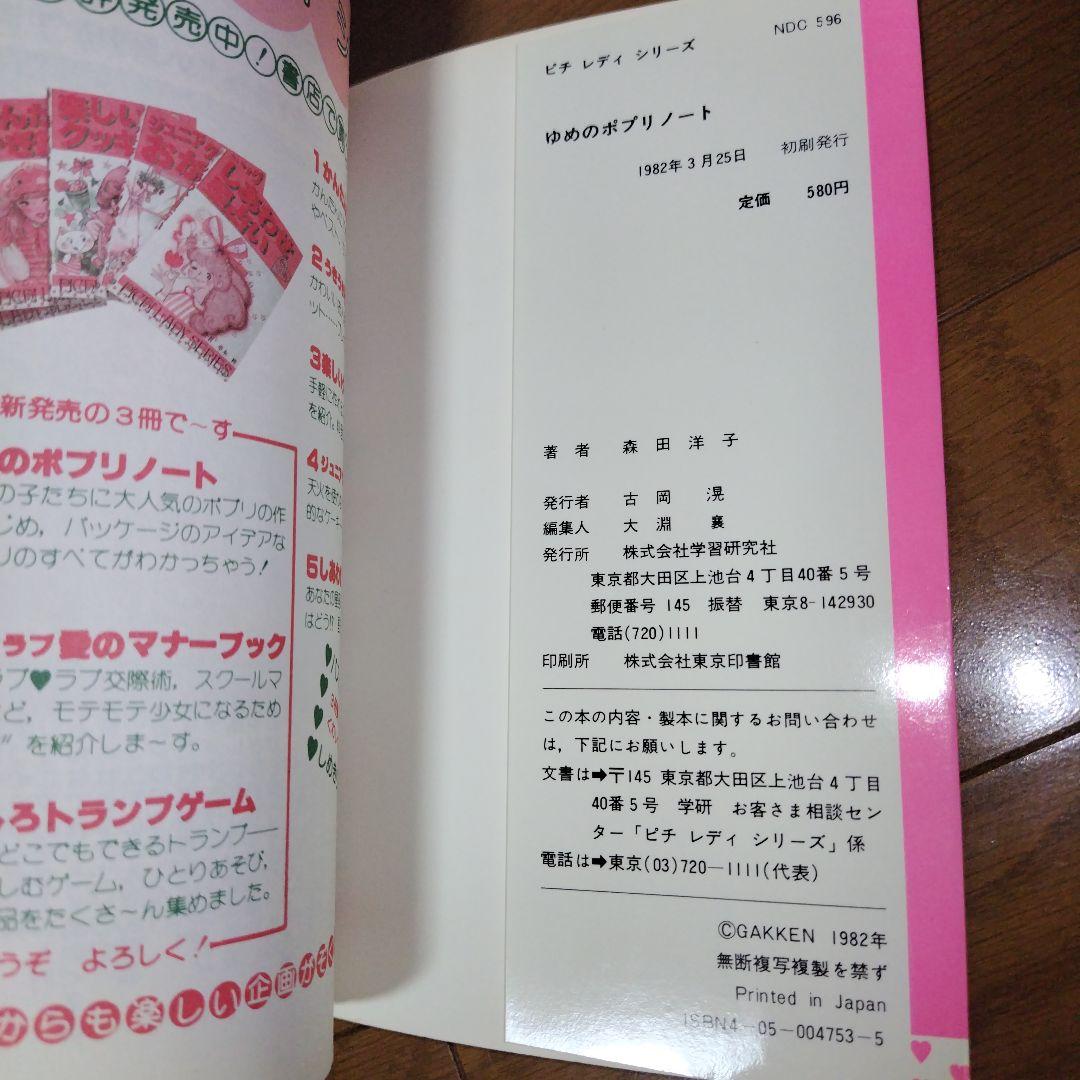 発売中!書店で
楽しい
クッキ
ジュニア
PICHI LADY SERIES
新発売の3冊で〜す
のポプリノート
の子たちに大人気のポプリの作
じめ,パッケージのアイデアな
リのすべてがわかっちゃう!
ラブ愛のマナーブック
ラブ♥ラブ交際術,スクールマ
ど,モテモテ少女になるため
”を紹介しま〜す。
ろトランプゲーム
どこでもできるトランプ―
しむゲーム,ひとりあそび,
品をたくさ〜ん集めました。
うぞ よろしく!
からも楽しい企画がぞく
1かんた
やベスト
2うきうき
かわいい
ット……
3楽しい
手軽に
を紹介。
4ジュニア
天火を使
的なケーキ
5しあわ
あなたの
はどう!!
NDC 596
ピチ レディ シリーズ
ゆめのポプリノート
1982年3月25日 初刷発行
定価 580円
著者 森田洋子
発行者 古岡 滉
編集人 大淵 襄
発行所 株式会社学習研究社
東京都大田区上池台4丁目40番5号
郵便番号 145 振替 東京8-142930
電話(720)1111
印刷所 株式会社東京印書館
この本の内容・製本に関するお問い合わせ
は,下記にお願いします。
文書は➡〒145 東京都大田区上池台4丁目
40番5号 学研 お客さま相談セン
ター「ピチ レディ シリーズ」係
電話は➡東京(03)720―1111(代表)
©GAKKEN 1982年
無断複写複製を禁ず
Printed in Japan
ISBN4-05-004753-5